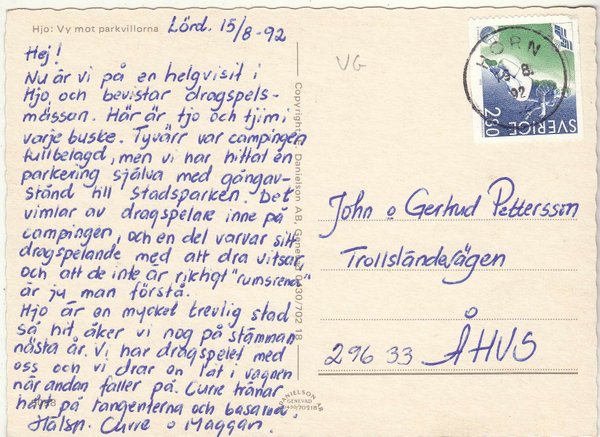 Hjo: Vy mot parkvillorna
Lörd. 15/8-92
Hej!
Nu är vi på en helgvisit i
Hjo och bevistar dragspels-
mässan. Här är tjo och tjim i
varje buske. Tyvärr var campingen
fullbelagd, men vi har hittat en
parkering själva med gångav-
stånd till stadsparken. Det
vimlar av dragspelare inne på
campingen, och en del varvar sitt
dragspelande med att dra vitsar,
och att de inte är riktigt "rumsrena"
är ju man förstå.
Hjo är en mycket trevlig stad
så hit åker vi nog på stämman
nästa år. Vi har dragspelet med
oss och vi drar en låt i vagnen
när andan faller på. Curre tränar
hårt på tangenterna och basarna.
Hälsn. Curre o Maggan.
VG
HORN
92
SVERIGE
280
John o Gerthud Pettersson
Trollsländevägen
296 33 ÅHUS
DANIELSON AB
GENEVAD
0430/70218